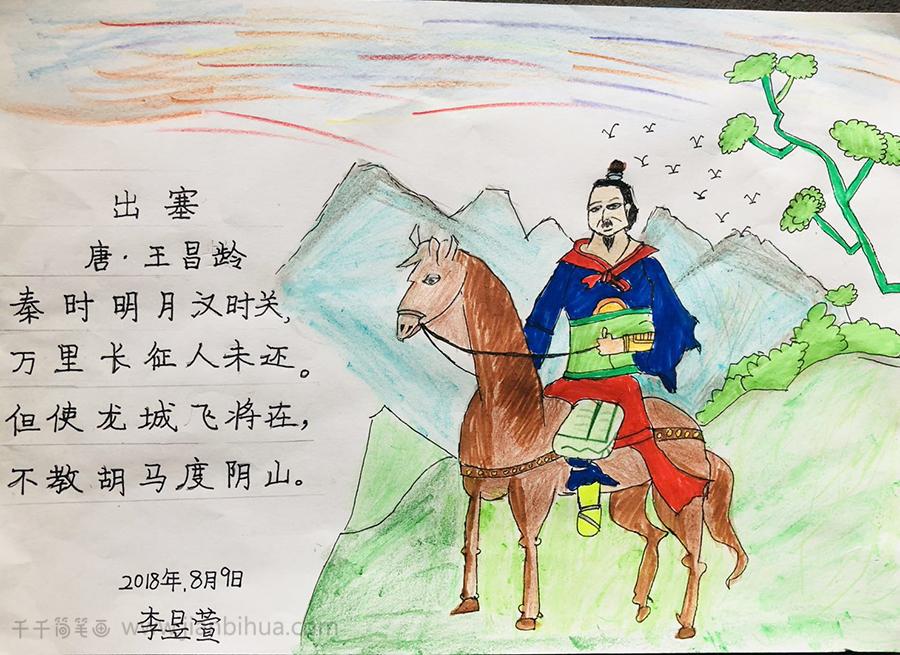 出塞
唐·王昌龄
秦时明月汉时关,
万里长征人未还。
但使龙城飞将在,
不教胡马度阴山。
2018年,8月9日
李昱萱
千千简笔画 www.jianbihua.com